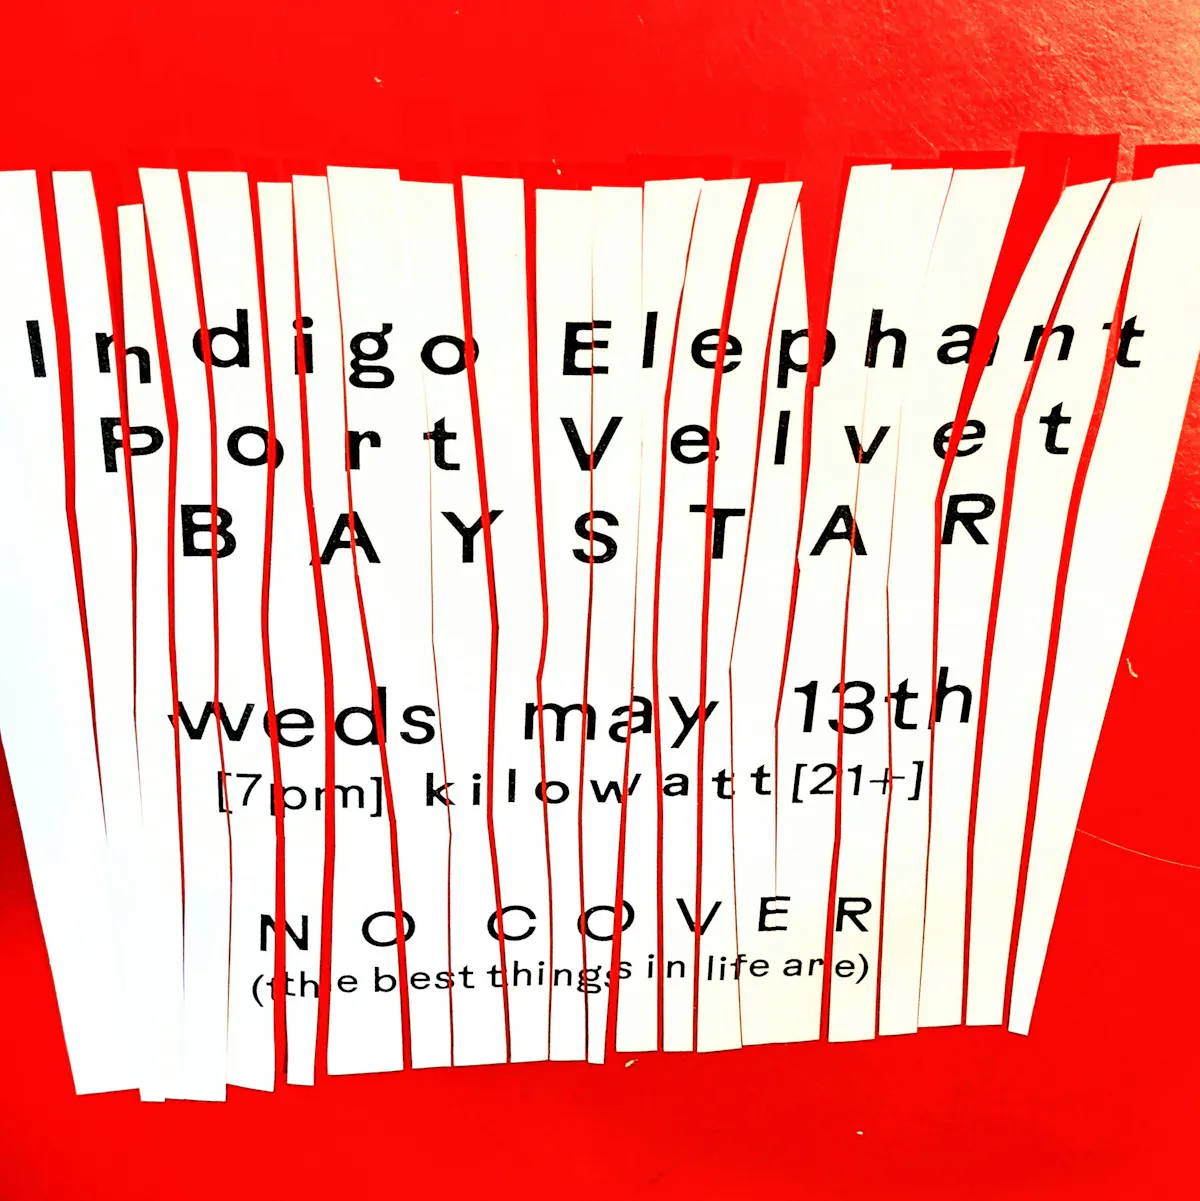 Indigo Elephant
Port Velvet
BAYSTAR
weds may 13th
[7pm] kilowatt [21+]
NO COVER
(the best things in life are)